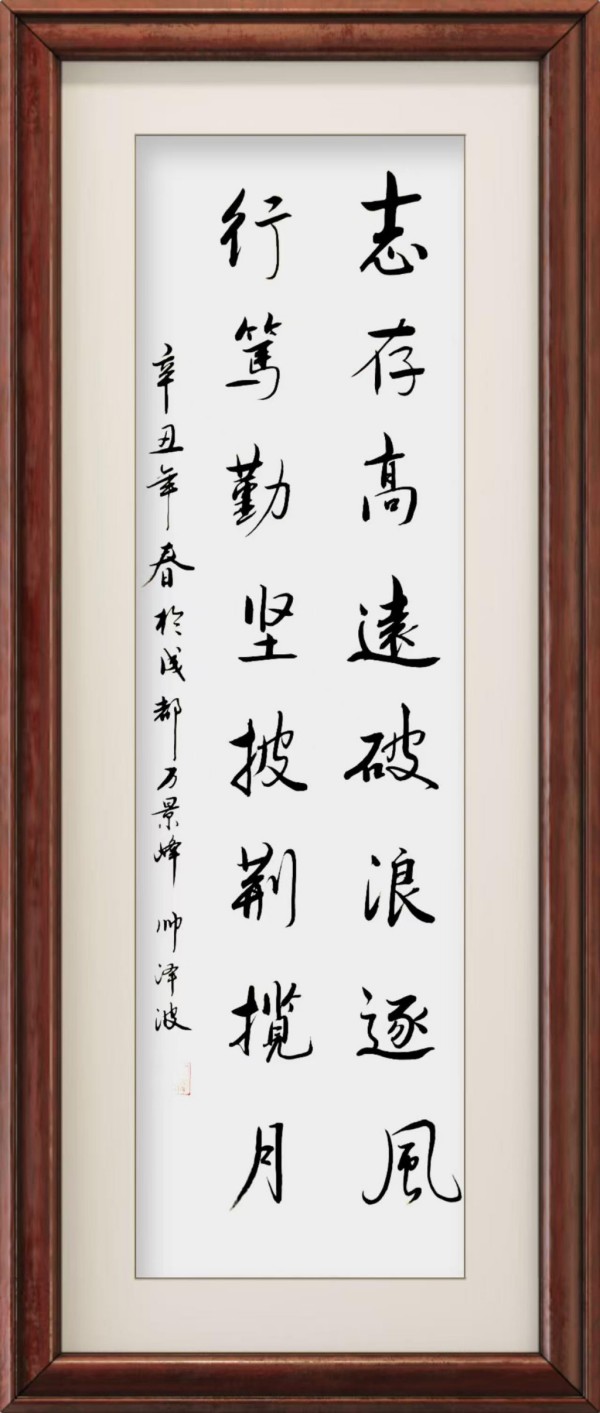 志存高遠破浪逐風
行篤勤坚披荆揽月
辛丑年春於成都万景峰 帅泽波